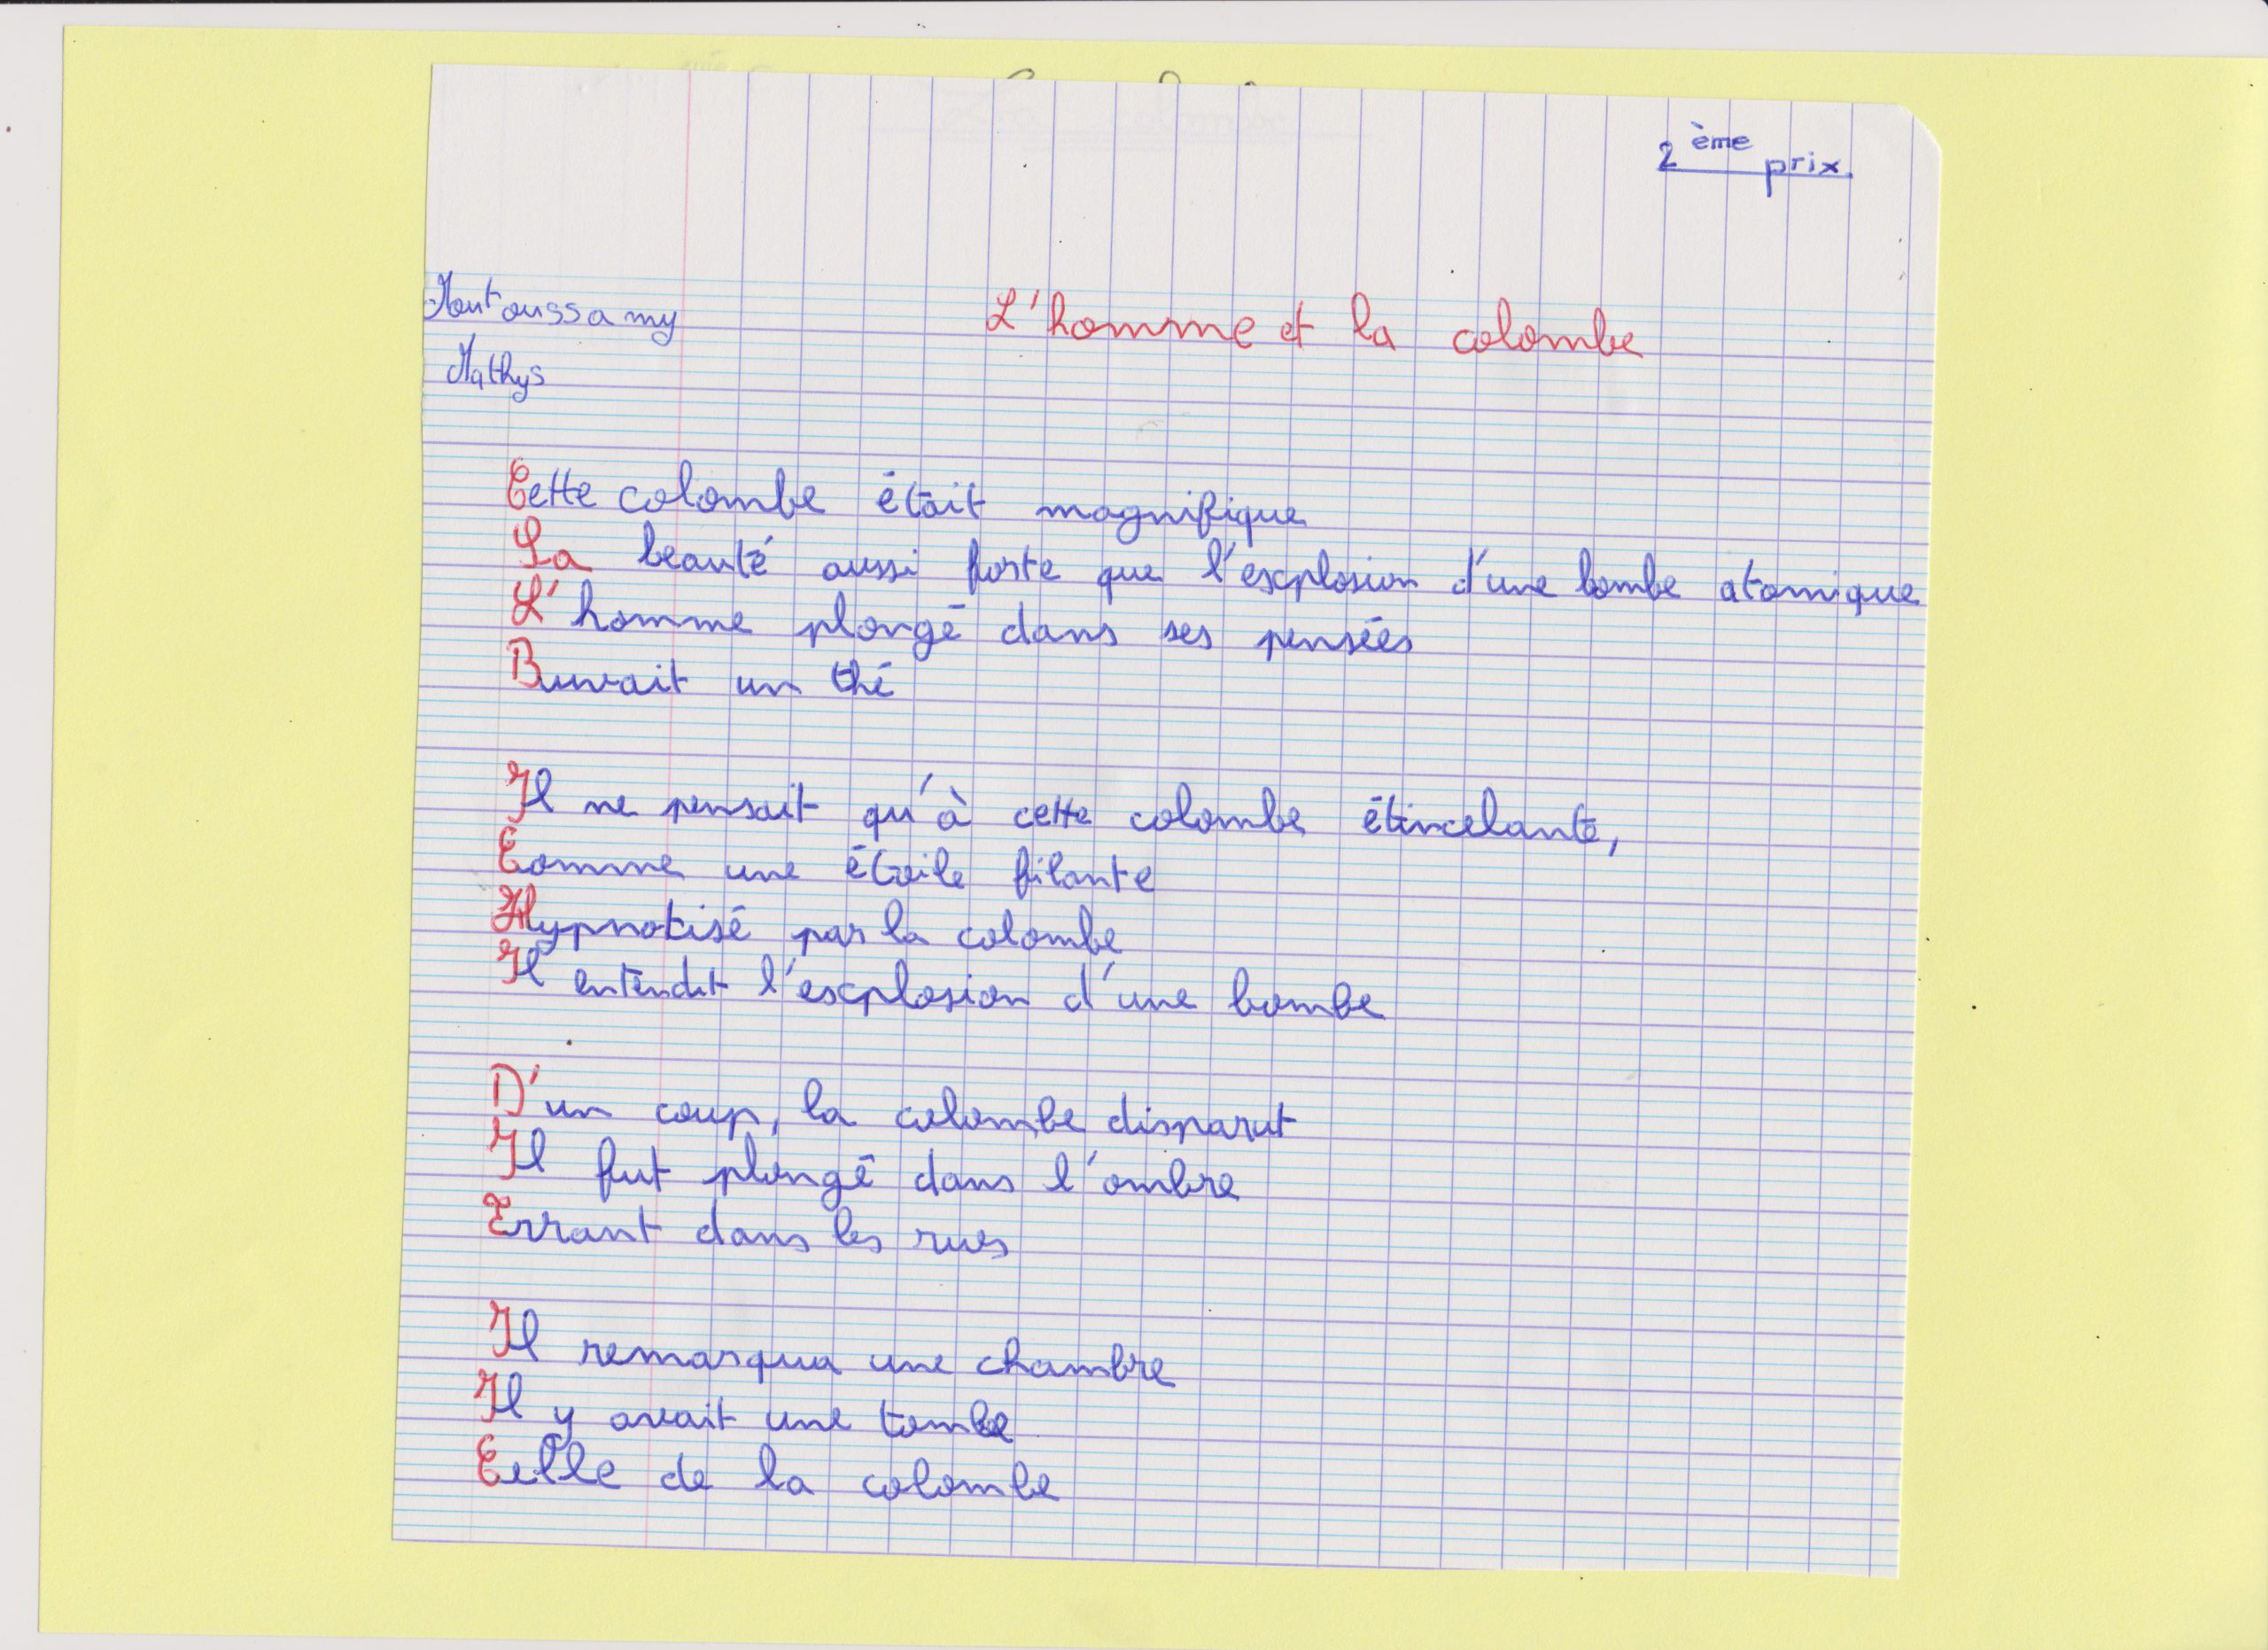 2ème prix.
Moutoussamy
L'homme et la colombe
Mathys
Cette colombe était magnifique
Sa beauté aussi forte que l'explosion d'une bombe atomique
L'homme plongé dans ses pensées
Buvait un thé
Il ne pensait qu'à cette colombe étincelante,
Comme une étoile filante
Hypnotisé par la colombe
Il entendit l'explosion d'une bombe
D'un coup, la colombe disparut
Il fut plongé dans l'ombre
Errant dans les rues
Il remarqua une chambre
Il y avait une tombe
Celle de la colombe